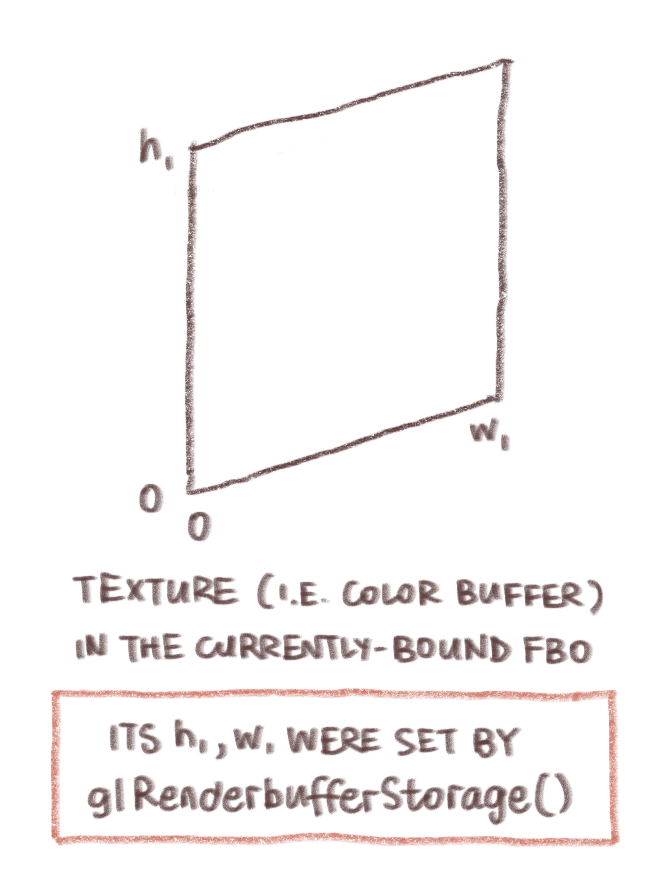 h₁
w₁
0
0
TEXTURE (I.E. COLOR BUFFER)
IN THE CURRENTLY-BOUND FBO
ITS h₁, w₁ WERE SET BY
glRenderbufferStorage()